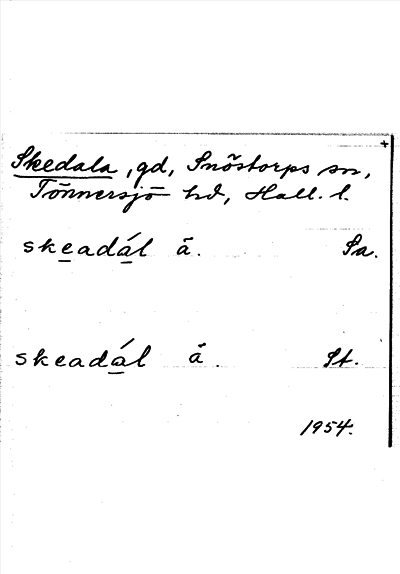 Skedala, gd, Snöstorps sn,
Tönnersjö hd, Hall. l.
skeadál å. Sa.
skeadál å. St.
1954.